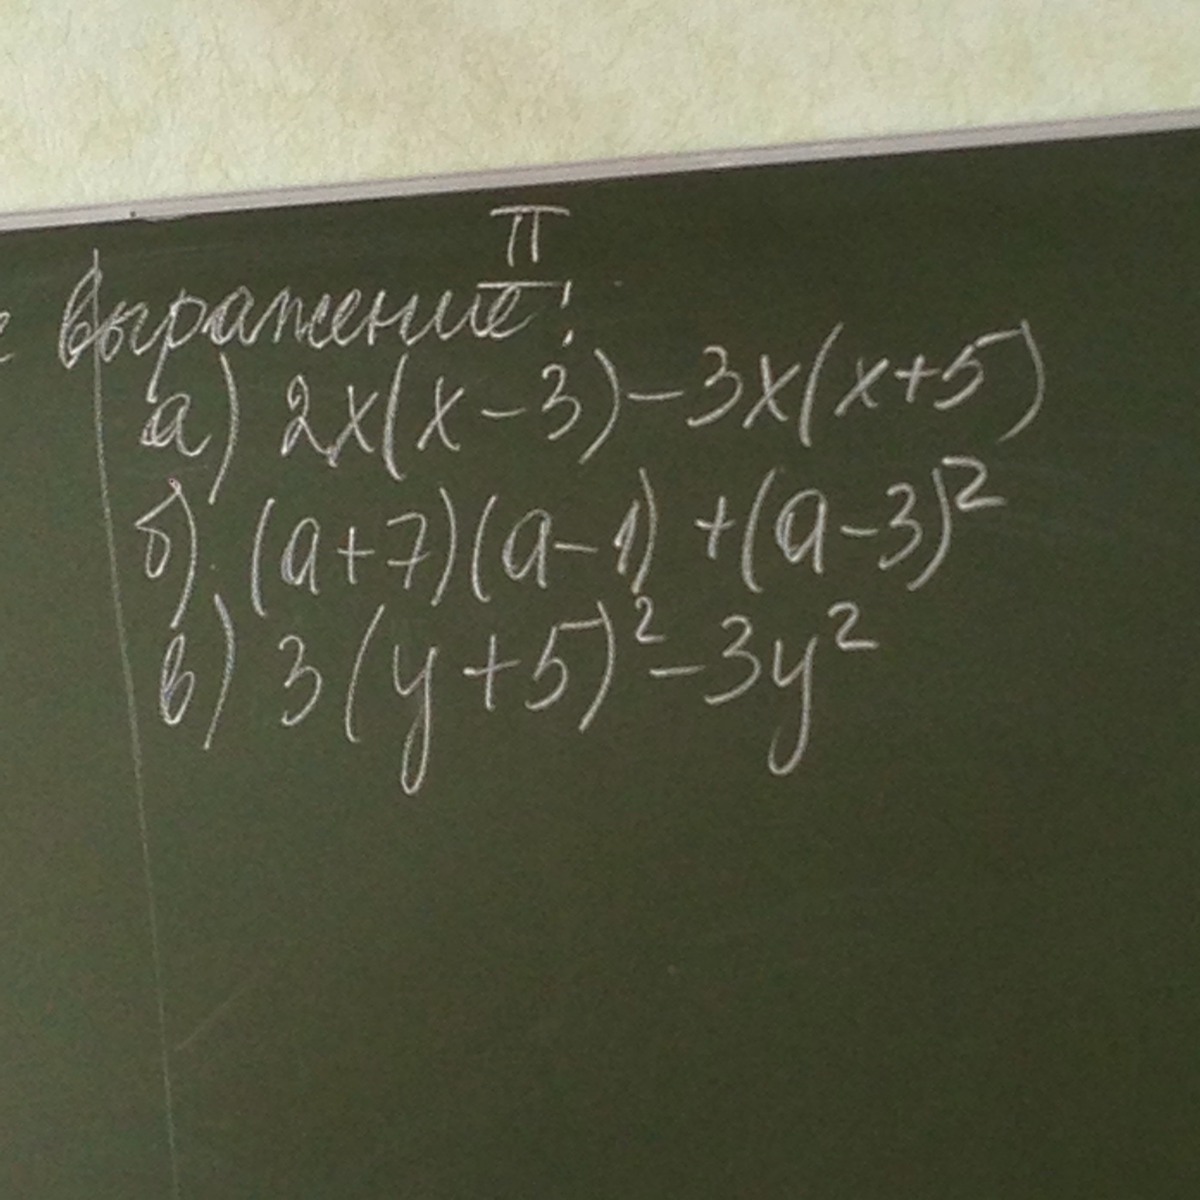 II
выражение:
а) 2x(x-3)-3x(x+5)
б) (a+7)(a-1)+(a-3)²
в) 3(y+5)²-3y²